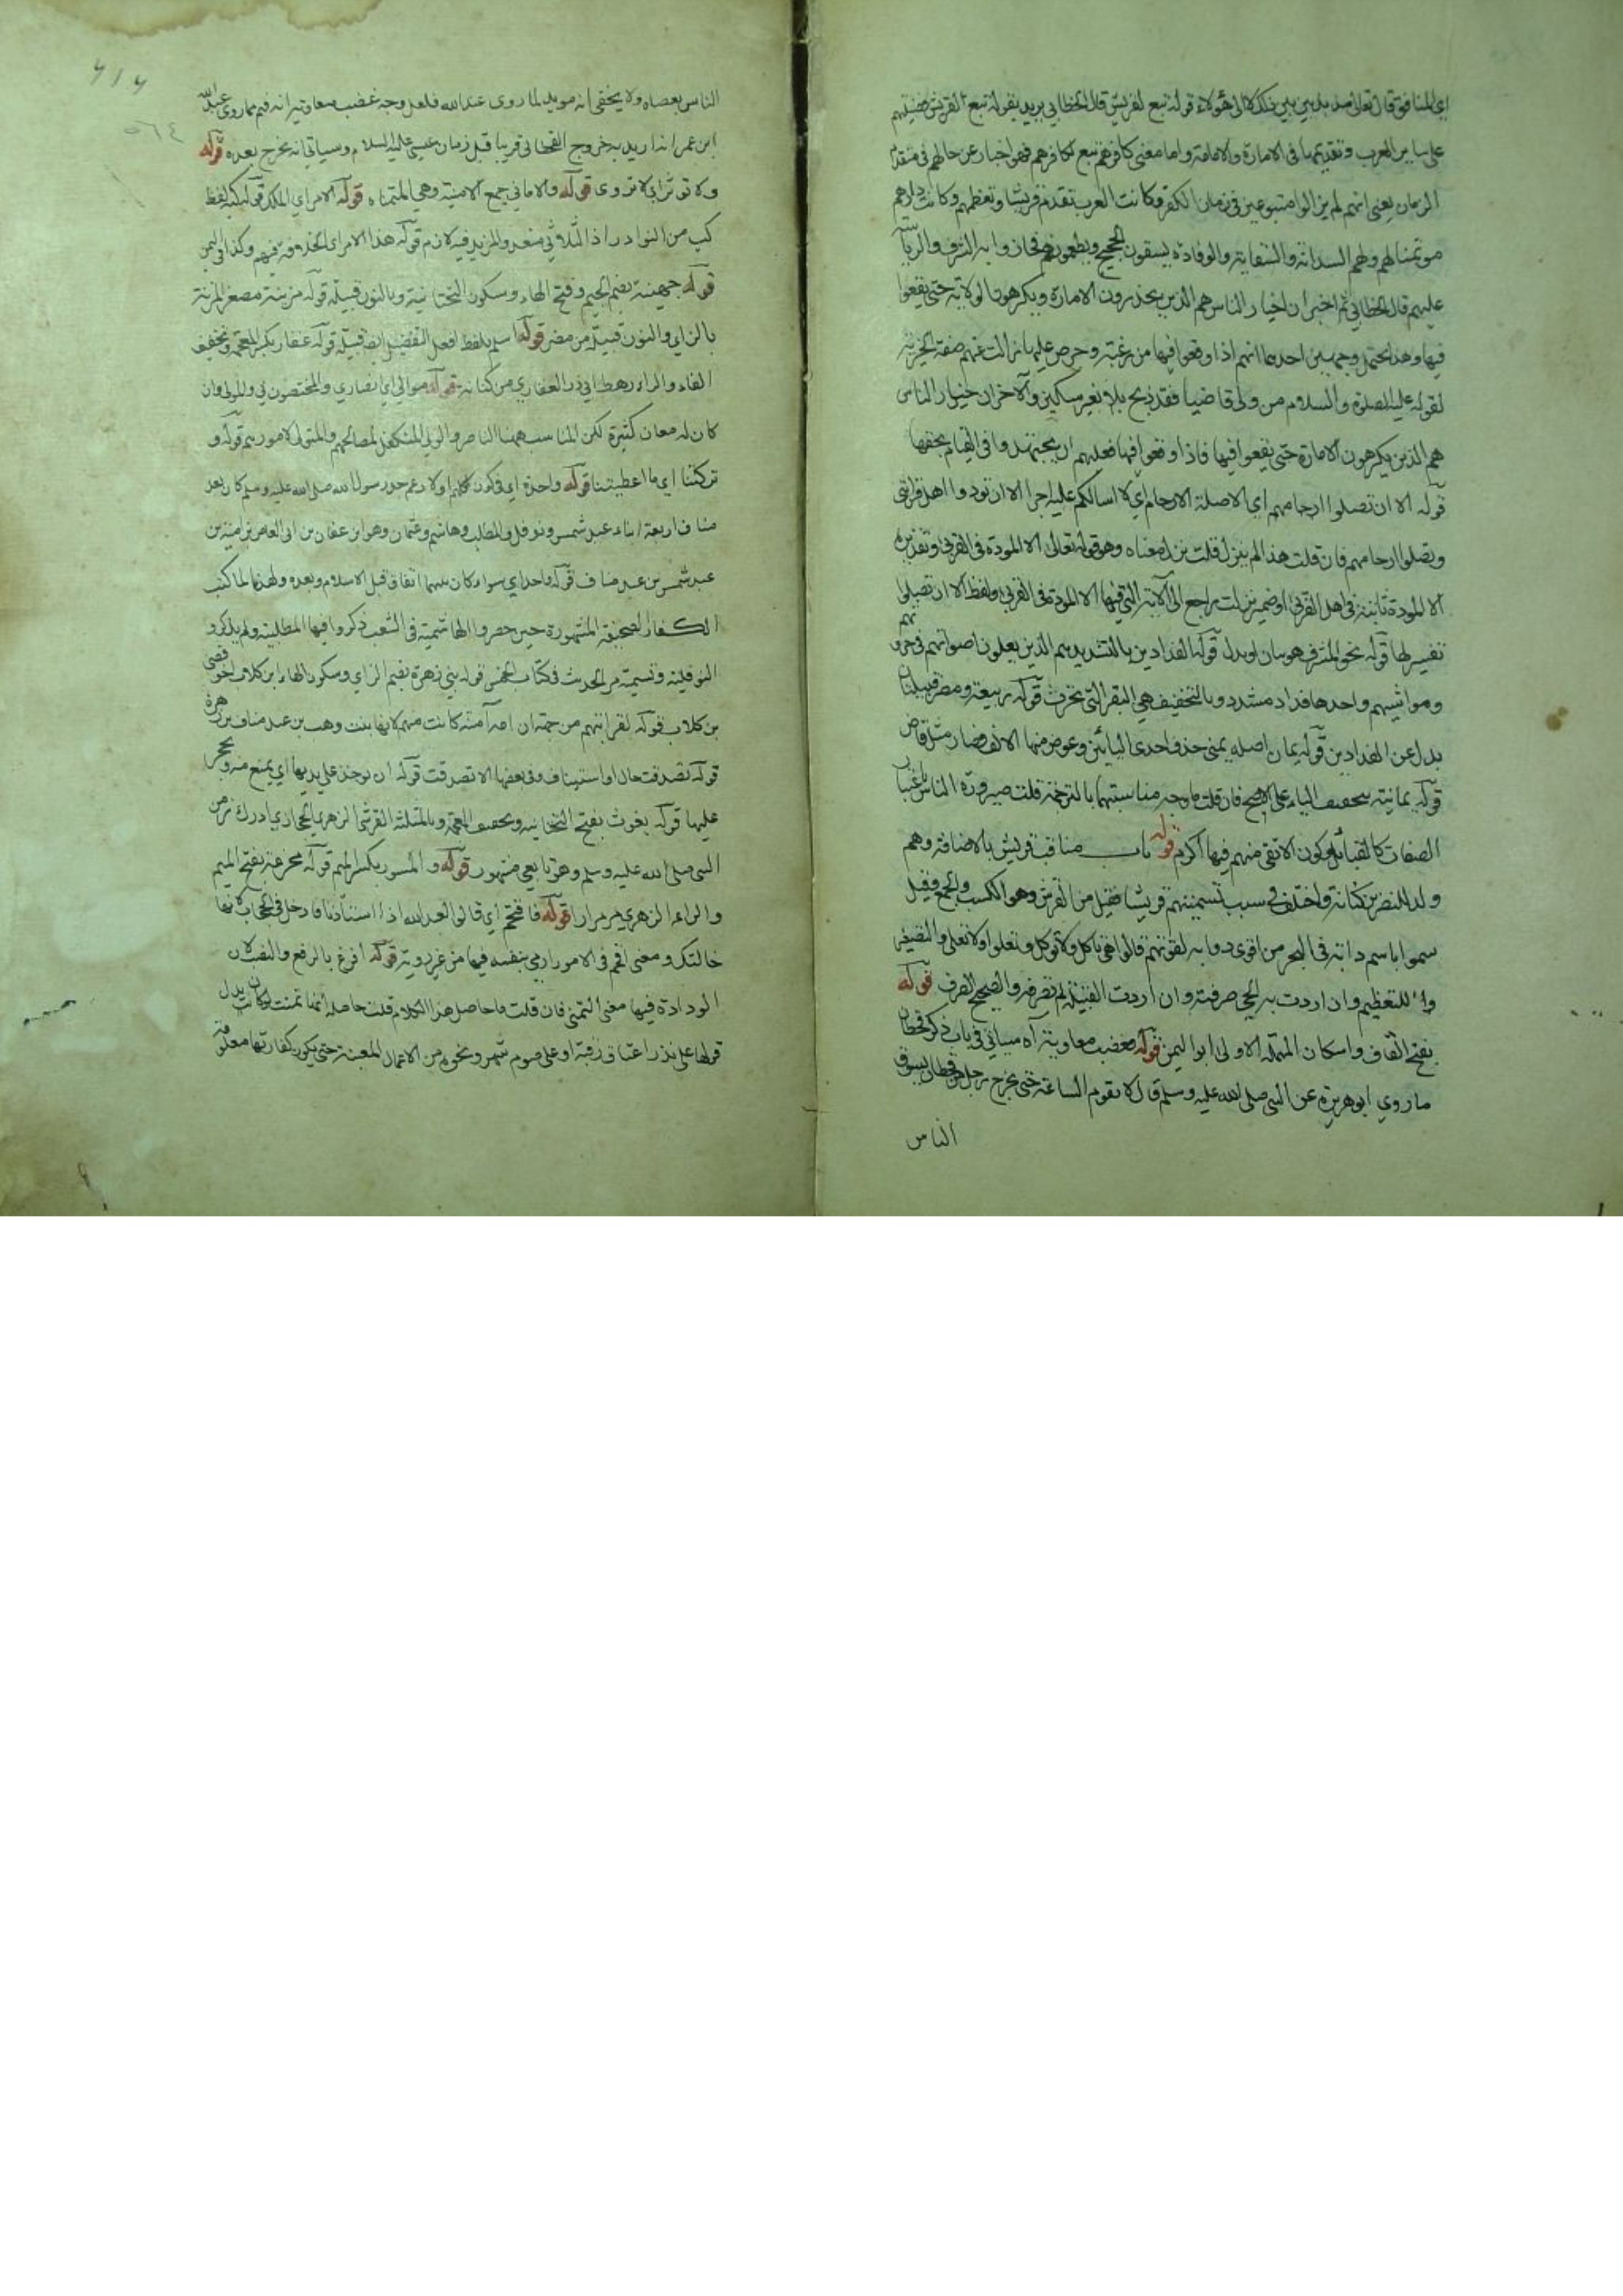 اي المنافق قال تعالى مذبذبين بين ذلك لا الى هؤلاء قوله تبع لقريش قال الخطابي يريد بقوله تبع لقريش تفضيلهم
على ساير العرب وتقديمها في الامارة والامامة واما معنى كافرهم تبع لكافرهم فهو اخبار عن حالهم في متقدم
الزمان يعني انهم لم يزالوا متبوعين في زمان الكفر وكانت العرب تقدم قريشا وتعظمهم وكانت دارهم
موسما لهم ولهم السدانة والسقاية والوفادة يسقون الحجيج ويطعمونهم فحازوا به الشرف والرياسة
عليهم قال الخطابي ثم اخبر ان خيار الناس هم الذين يحذرون الامارة ويكرهون الولاية حتى يقعوا
فيها وهذا يحتمل وجهين احدهما انهم اذا وقعوا فيها من رغبة وحرص عليها زالت عنهم صفة الخيرية
لقوله عليه الصلوة والسلام من ولي قاضيا فقد ذبح بلا بغير سكين والآخر ان خيار الناس
هم الذين يكرهون الامارة حتى يقعوا فيها فاذا وقعوا فيها فعليهم ان يجتهدوا في القيام بحقها
قوله الا ان تصلوا ارحامهم اي الاصلة الارحام اي لا اسالكم عليه اجرا الا ان تودوا اهل قرابتي
وتصلوا ارحامهم فان قلت هذا لم ينزل قلت نزل معناه وهو قوله تعالى الا المودة في القربى وتقديره
الا المودة ثابتة في اهل القربى او ضمير نزلت راجع الى الآية التي فيها الا المودة في القربى ولفظ الا ان تصلوا
تفسير لها قوله نحو المشرق هو بيان او بدل قوله الفدادين بالتشديد هم الذين يعلون اصواتهم في حروثهم
ومواشيهم واحدها فداد مشدد وبالتخفيف هي البقر التي تحرث قوله ربيعة ومضر قبيلتان
بدل عن الفدادين قوله يمان اصله يمنى حذف احدى اليائين وعوض منها الالف فصار مثل قاض
قوله يمانية بتخفيف الياء على الاصح فان قلت ما وجه مناسبتها بالترجمة قلت صيرورة الناس باعتبار
الصفات كالقبايل وكون الاتقى منهم فيها اكرم قوله باب مناقب قريش بالاضافة وهم
ولد النضر بن كنانة واختلف في سبب تسميتهم قريشا فقيل من القرش وهو الكسب والجمع وقيل
سموا باسم دابة في البحر من اقوى دوابه لقوتهم قالوا هي تاكل ولا توكل وتعلوا ولا تعلى والتصغير
للتعظيم وان اردت به الحي صرفته وان اردت القبيلة لم تصرفه والصحيح الصرف قوله
بفتح القاف واسكان المهملة الاولى ابو اليمن قوله فغضب معاوية آه سياتي في باب ذكر قحطان
ما روى ابو هريرة عن النبي صلى الله عليه وسلم قال لا تقوم الساعة حتى يخرج رجل من قحطان يسوق
الناس
٤١٤
٥٦٤
الناس بعصاه ولا يخفى انه مويد لما روى عبد الله فلعل وجه غضب معاوية انه فهم مما روى عبد الله
ابن عمر انه اريد به خروج القحطاني قريبا قبل زمان عيسى عليه السلام وسياتي انه يخرج بعده قوله
ولا توثر اي لا تروى قوله والاماني جمع الامنية وهي المتمناه قوله الامر اي الملك قوله كبه لفظ
كب من النوادر اذ الثلاثي متعد والمزيد فيه لازم قوله هذا الامر اي الخلافة وكذا في اليمن
قوله جهينة بضم الجيم وفتح الهاء وسكون التحتانية وبالنون قبيلة قوله مزينة مصغر المزنة
بالزاي والنون قبيلة من مضر قوله اسلم بلفظ افعل التفضيل ايضا قبيلة قوله غفار بكسر المعجمة وتخفيف
الفاء والراء رهط ابي ذر الغفاري من كنانة قوله موالي اي انصاري والمختصون بي والمولى وان
كان له معان كثيرة لكن المناسب ههنا الناصر والولي المتكفل لمصالحهم والمتولي لامورهم قوله و
تركتنا اي ما اعطيتنا قوله واحدة اي رسول الله صلى الله عليه وسلم كان لعبد
مناف اربعة ابناء عبد شمس ونوفل والمطلب وهاشم وعثمان وهو ابن عفان بن ابي العاص بن امية بن
عبد شمس بن عبد مناف قوله واحد اي سواء كان بينهما اتفاق قبل الاسلام وبعده ولهذا لما كتب
الكفار الصحيفة المشهورة حين حصروا الهاشمية في الشعب ذكروا فيها المطلبية ولم يذكروا
النوفلية وتسمية مر الحديث في كتاب الخمس قوله بني زهرة بضم الزاي وسكون الهاء ابن كلاب اخو قصي
بن كلاب قوله لقرابتهم من جهة ان امه آمنة كانت منهم لانها بنت وهب بن عبد مناف بن زهرة
قوله تصدقت حال او استيناف وفي بعضها الا تصدقت قوله ان يوخذ على يديها اي يمنع منه ويحجر
عليها قوله يغوث بفتح التحتانية وتخفيف المعجمة وبالمثلثة القرشي الزهري الحجازي ادرك زمن
النبي صلى الله عليه وسلم وهو تابعي مشهور قوله والمسور بكسر الميم قوله مخرمة بفتح الميم
والراء الزهري مر مرارا قوله فاقتحم اي قالوا لعبد الله اذا استأذنا فادخل في الحجاب لانها
خالتك ومعنى اقحم في الامور ارمي بنفسه فيها من غير روية قوله افرغ بالرفع والنصب لان
الودادة فيها معنى التمني فان قلت ما حاصل هذا الكلام قلت حاصله انها تمنت لو كان بدل
قولها علي نذر اعتاق رقبة او علي صوم شهر ونحوه من الاعمال المعينة حتى يكون كفارتها معلومة